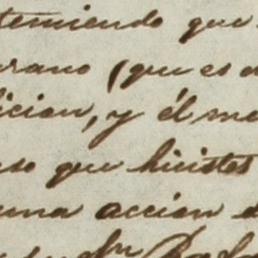 temiendo que
rano (que es
licion, y él me
so que hicistes
una accion